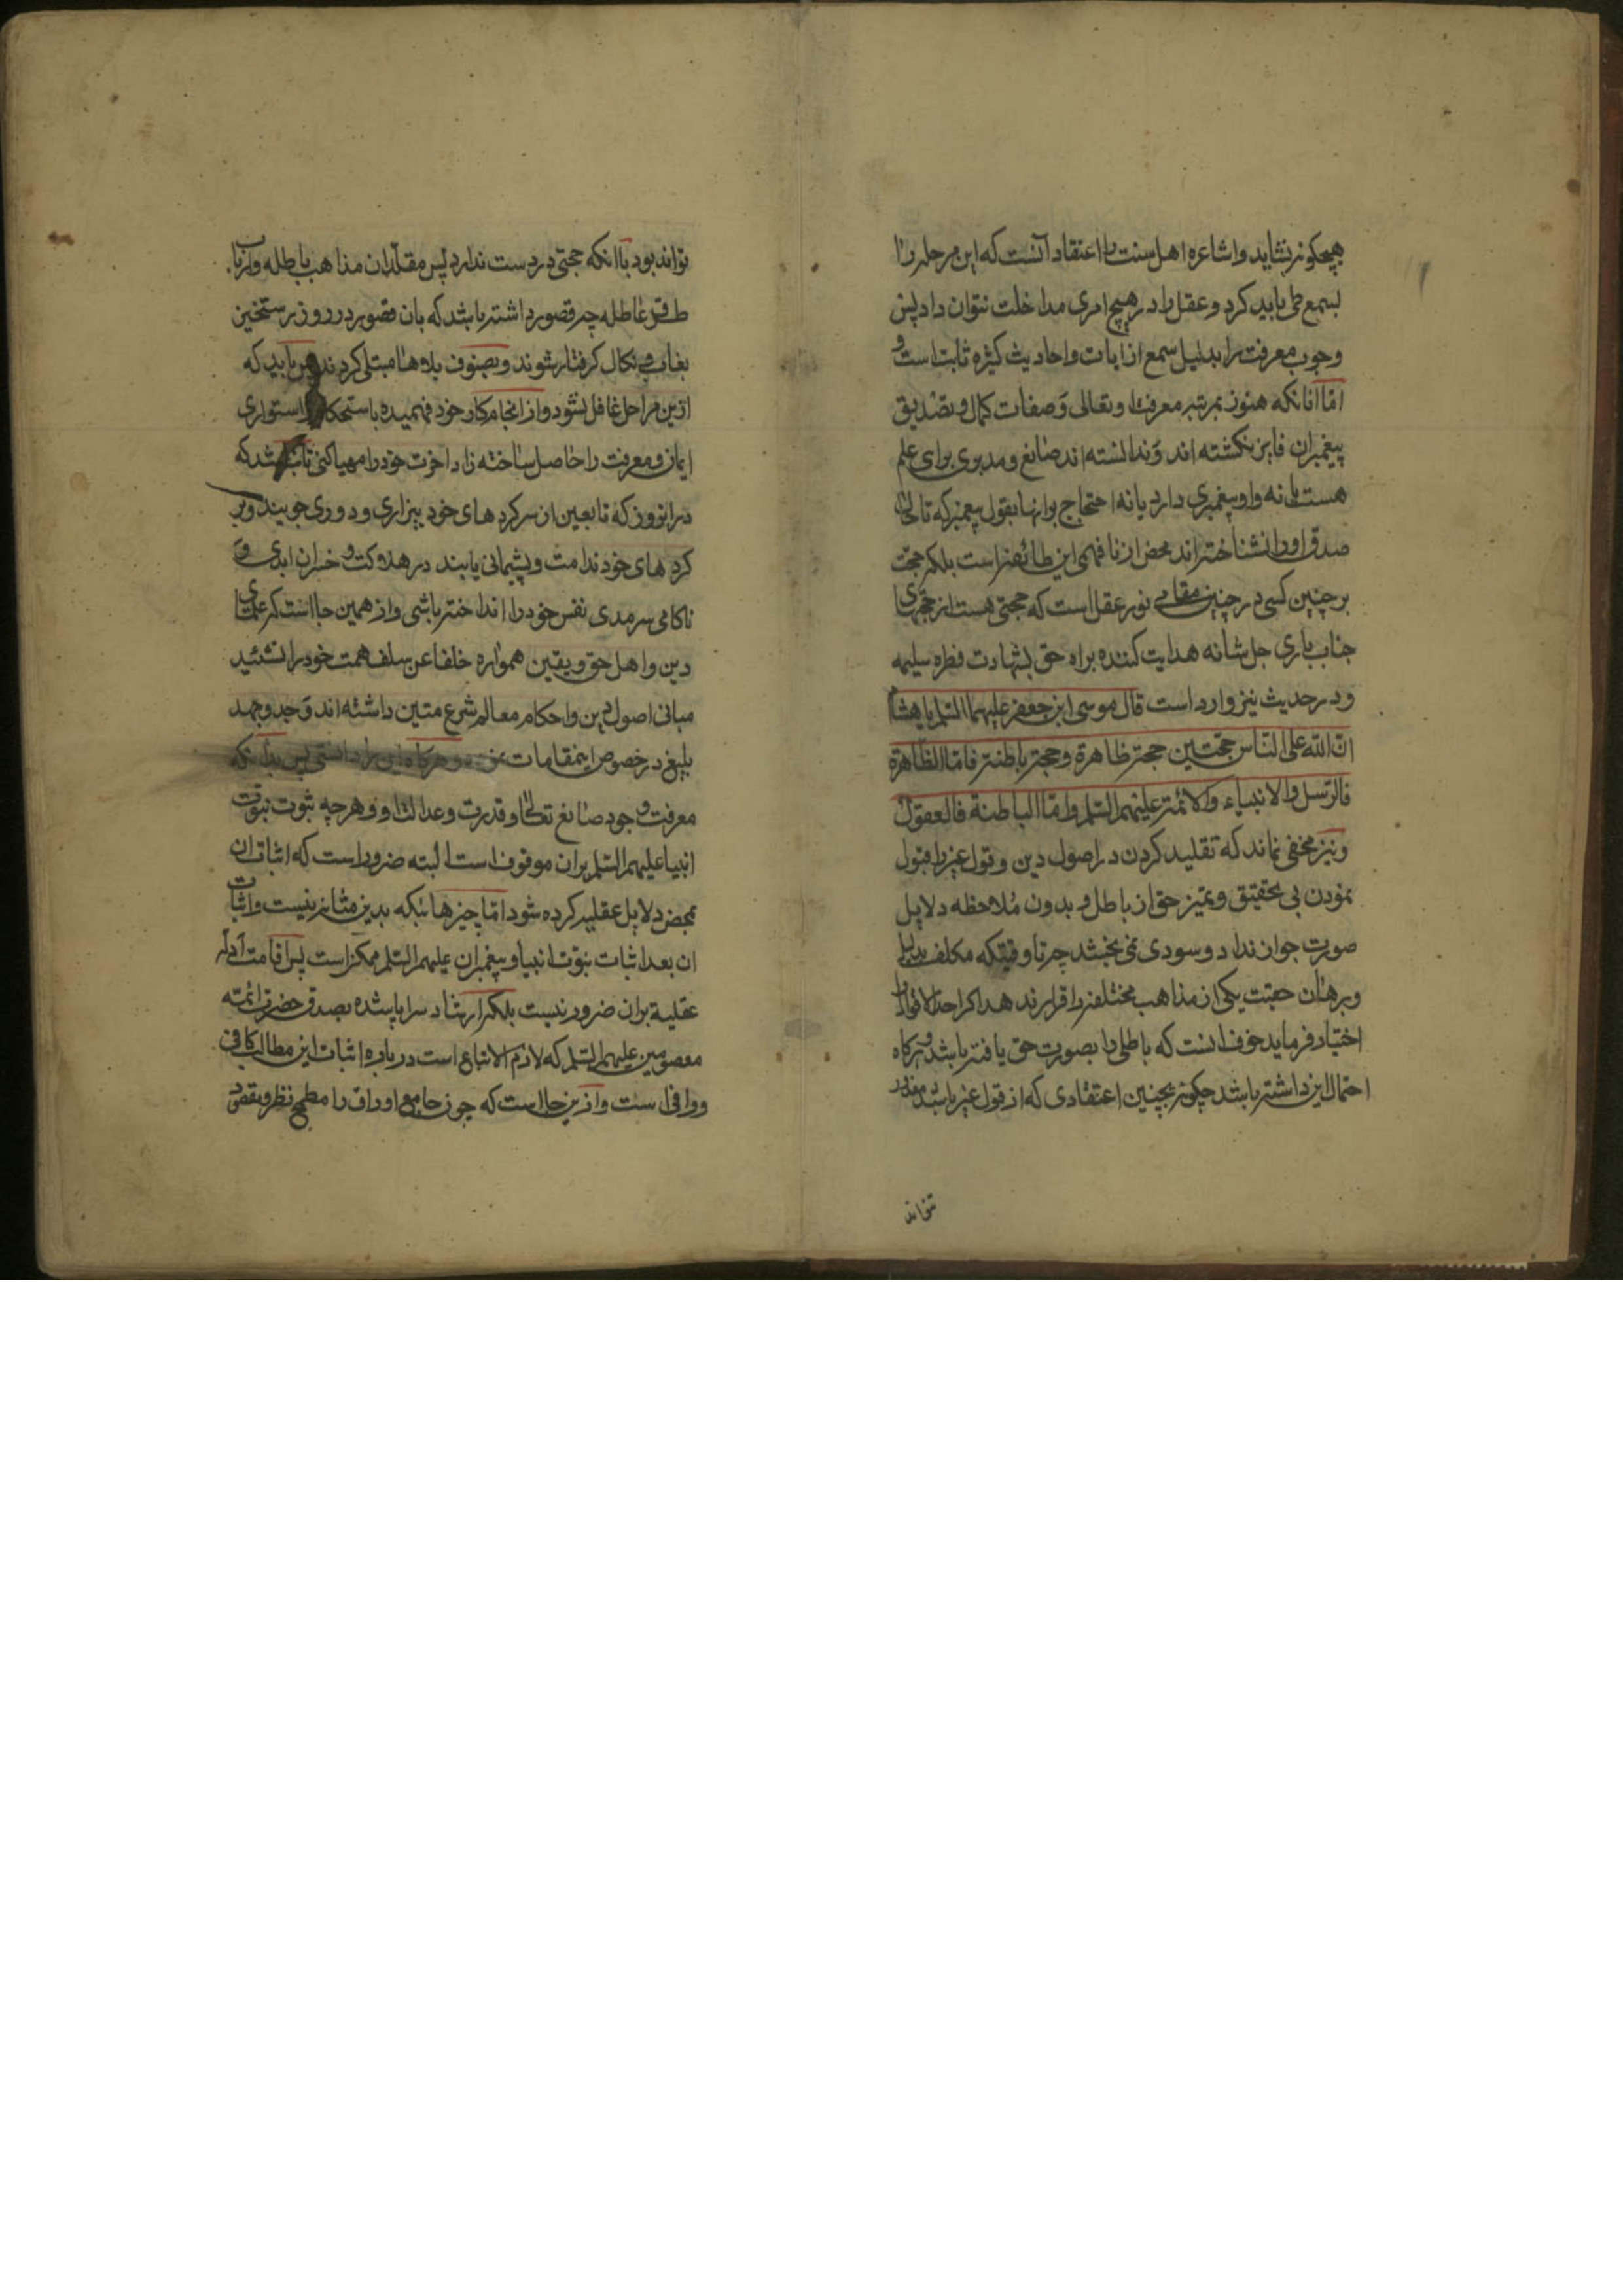 هیچگونه نشاید و اشاعره اهل سنت را اعتقاد آنست که این مرحله را
بسمع طی باید کرد و عقل را در هیچ امری مداخلت نتوان داد پس
وجوب معرفت را بدلیل سمع از ایات و احادیث کثیره ثابت است و
امّا انانکه هنوز بمرتبه معرفت او تعالی و صفات کمال و تصدیق
پیغمبران فایز نکشته اند و ندانسته اند صانع و مدبری برای علم
هست یا نه و او پیغمبری دارد یا نه احتجاج بر انها بقول پیغمبر که تا حال
صدق او را نشناخته اند محض از نافهمی این طائفه است بلکه حجت
بر چنین کسی در چنین مقامی نور عقل است که حجتی هست از حجتهای
جناب باری جل شانه هدایت کننده براه حق بشهادت فطره سلیمه
و در حدیث نیز وارد است قال موسی ابن جعفر علیهما السلم یا هشام
ان الله علی الناس حجتین حجة ظاهرة و حجة باطنة فامّا الظاهرة
فالرسل والانبیاء والائمة علیهم السلم وامّا الباطنة فالعقول
و نیز مخفی نماند که تقلید کردن در اصول دین و قول غیر را قبول
نمودن بی تحقیق و تمیز حق از باطل و بدون ملاحظه دلایل
صورت جواز ندارد و سودی نمی بخشد چه تا وقتیکه مکلف بدلیل
و برهان حقیت یکی از مذاهب مختلفه را قرار ندهد اکر احد الاقوال را
اختیار فرماید خوف انست که باطلی را بصورت حق یافته باشد و هرکاه
احتمال این داشته باشد چکونه بچنین اعتقادی که از قول غیر باشد معذور
تواند
تواند بود با انکه حجتی در دست ندارد پس مقلدان مذاهب باطله و ارباب
طرق عاطله چه قصور داشته باشد که بان قصور در روز رستخیز
بعذاب و نکال کرفتار شوند و بصنوف بلاها مبتلی کردند باید که
ازین مراحل غافل نشود و از انجام کار خود فهمیده باستحکام استواری
ایمان و معرفت را حاصل ساخته زاد اخرت خود را مهیا کنی تا باشد که
در انروز که تابعین از سرکرده های خود بیزاری و دوری جویند و بر
کرده های خود ندامت و پشیمانی یابند در هلاکت و خسران ابدی و
ناکامی سرمدی نفس خود را انداخته باشی و از همین جا است که علمای
دین و اهل حق و یقین همواره خلفا عن سلف همت خود را بتشئید
مبانی اصول دین و احکام معالم شرع متین داشته اند و جد و جهد
بلیغ در خصوص اینمقامات نموده و هرکاه این را دانستی پس بدانکه
معرفت وجود صانع تعالی و قدرت و عدالت او و هرچه ثبوت نبوّت
انبیا علیهم السلم بران موقوف است البته ضرور است که اثبات ان
بمحض دلایل عقلیه کرده شود امّا چیزهائیکه بدین مثابه نیست و اثبات
ان بعد اثبات نبوّت انبیا و پیغمبران علیهم السلم ممکن است پس اقامت ادله
عقلیة بران ضرور نیست بلکه ارشاد سراپا رشده بصدق حضرت ائمّه
معصومین علیهم السلم که لازم الاتباع است درباره اثبات این مطالب کافی
و وافی است و ازین جا است که چون جامع اوراق را مطمح نظر